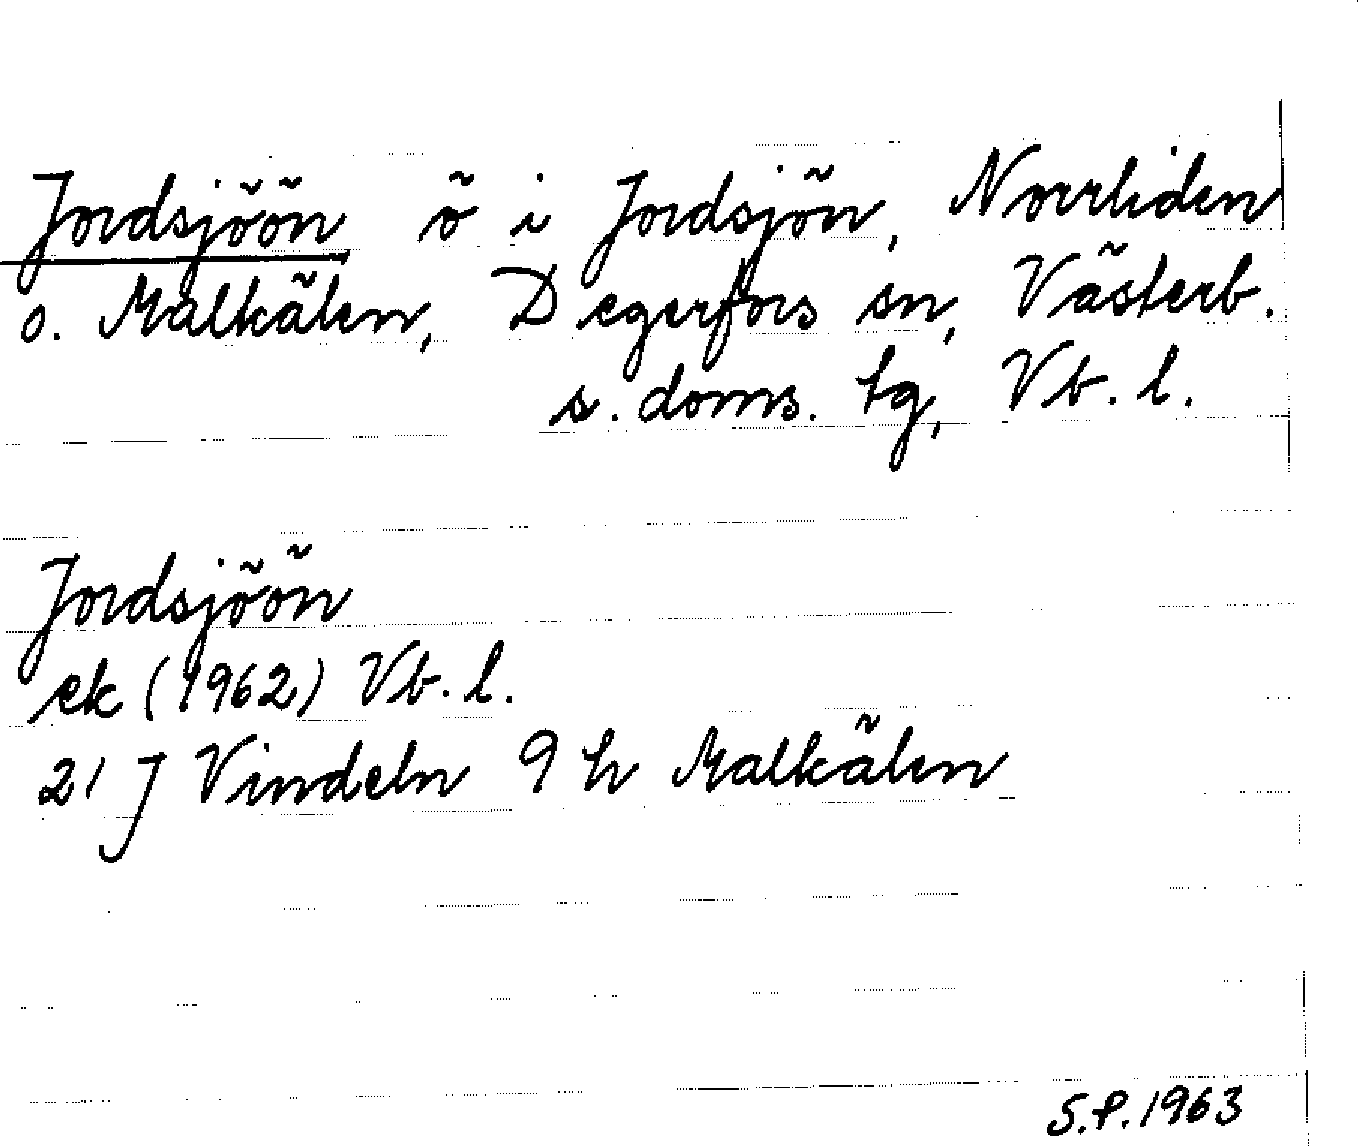 Jordsjöön ö i Jordsjön, Norrliden
o. Malkälen, Degerfors sn, Västerb.
s. doms. tg, Vb. l.
Jordsjöön
ek (1962) Vb. l.
21 J Vindeln 9 h Malkälen
S.P. 1963